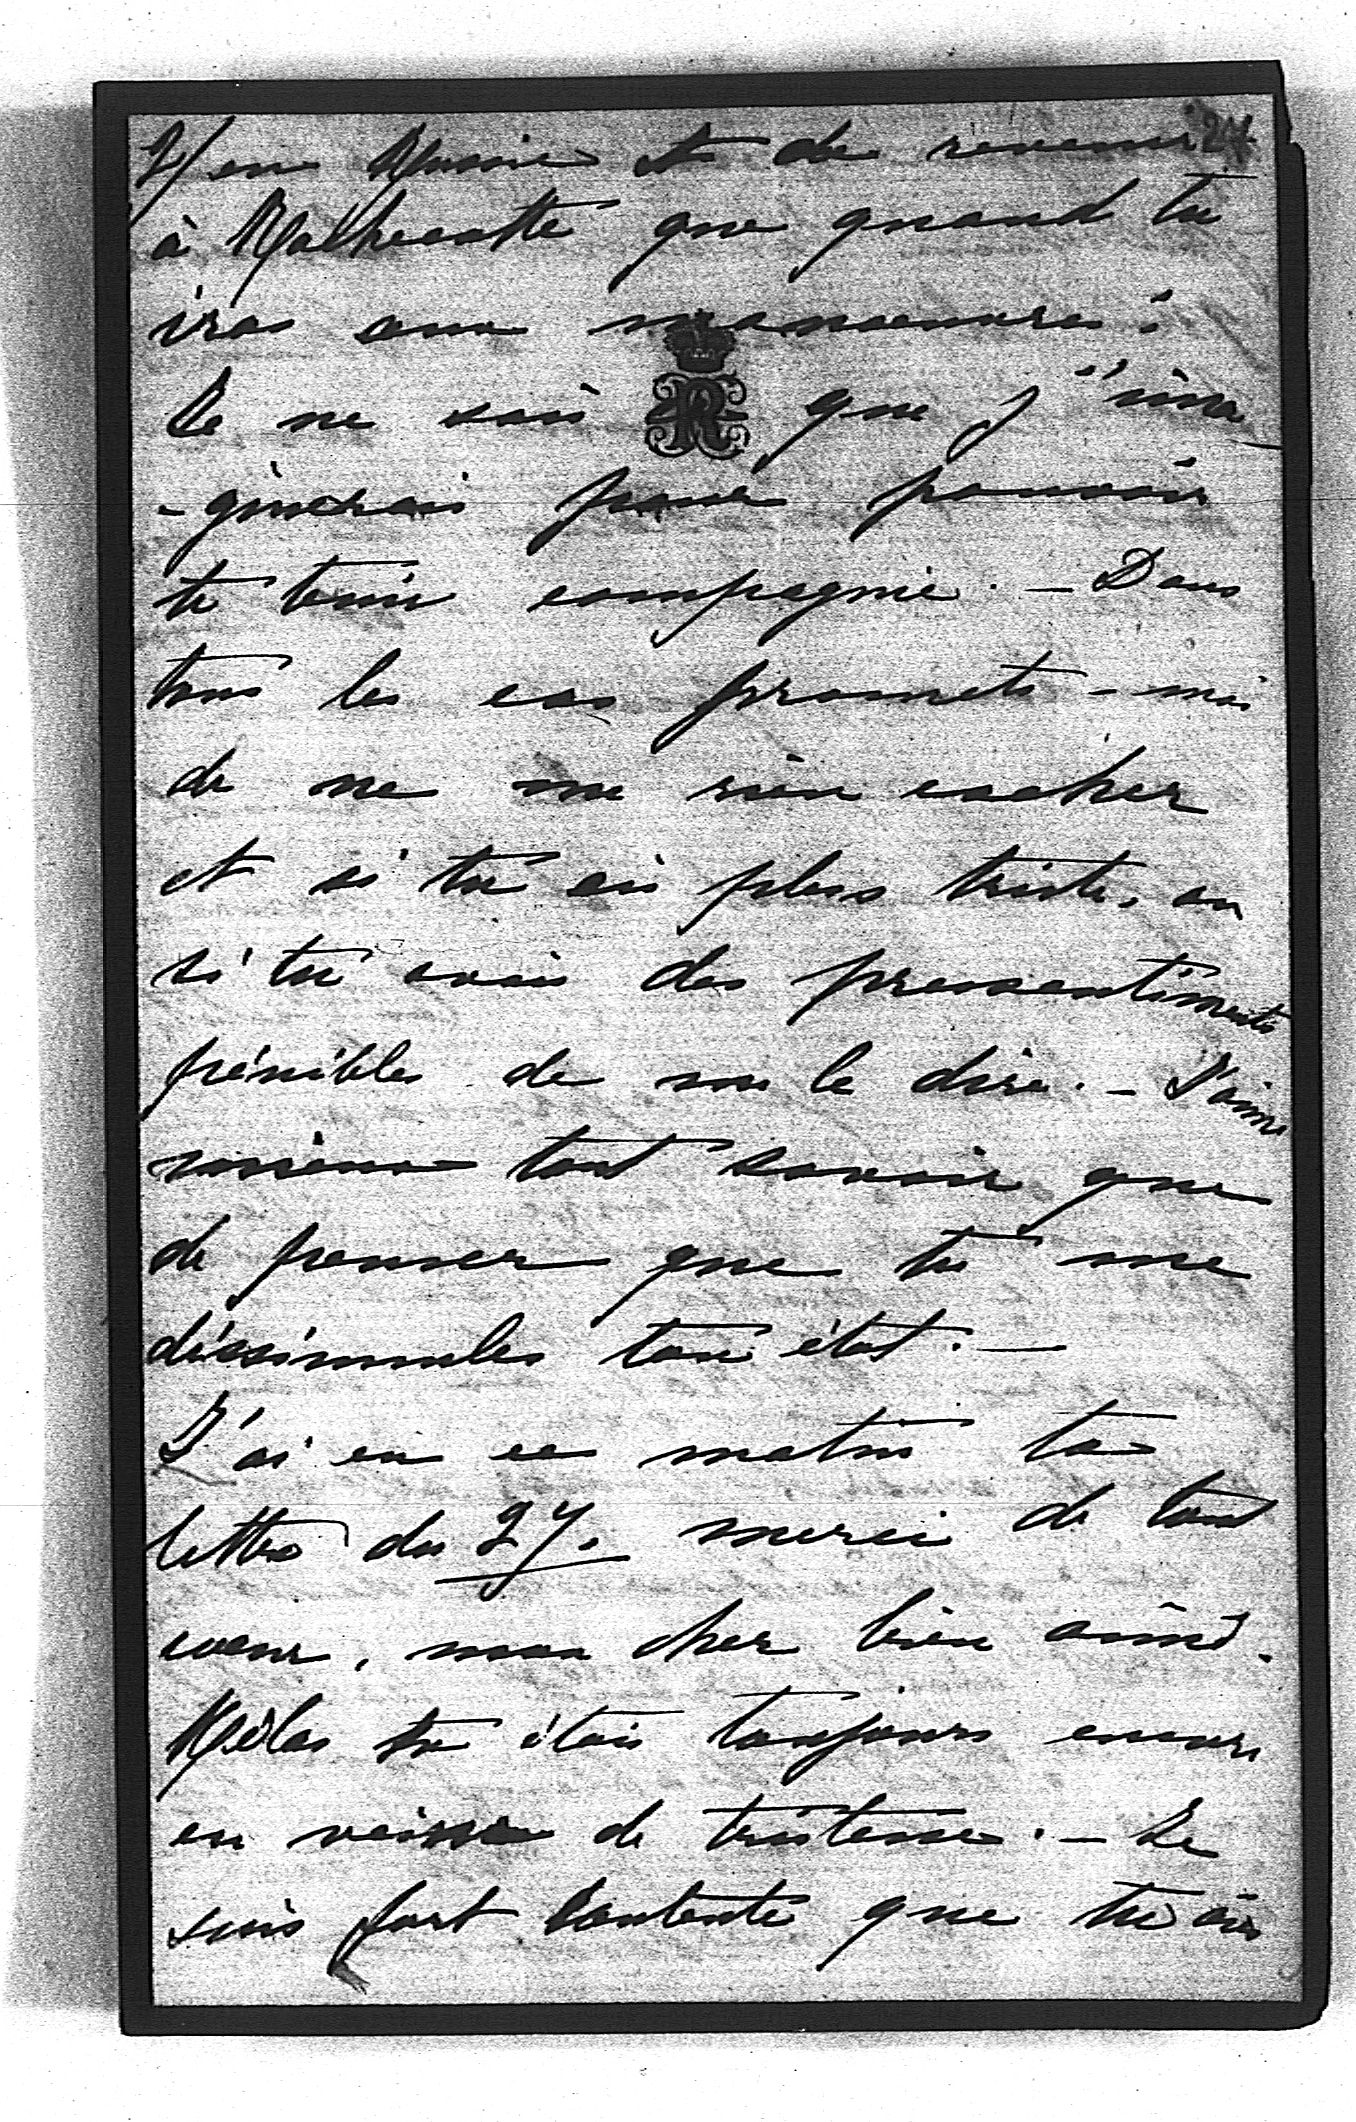 2/ en Russie et de revenir 24
à que quand tu
iras aux manoeuvres.
Je ne sais R que j'ima
-ginerais pour pouvoir
te tenir compagnie. - Dans
tous les cas promets-moi
de ne me rien cacher
et si tu es plus triste, ou
si tu avais des pressentiments
pénibles de me le dire. - J'aime
mieux tout savoir que
de penser que tu me
dissimules ton état. -
J'ai eu ce matin ta
lettre du 27. merci de tout
coeur, mon cher bien aimé.
Hélas tu étais toujours encore
en veine de tristesse. - Je
suis fort contente que tu ais